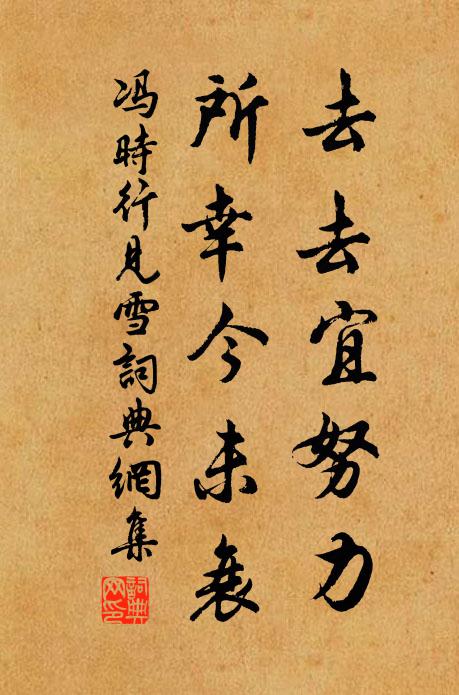 去去宜努力
所幸今未衰
冯時行見雪詞典網集
詞典网印